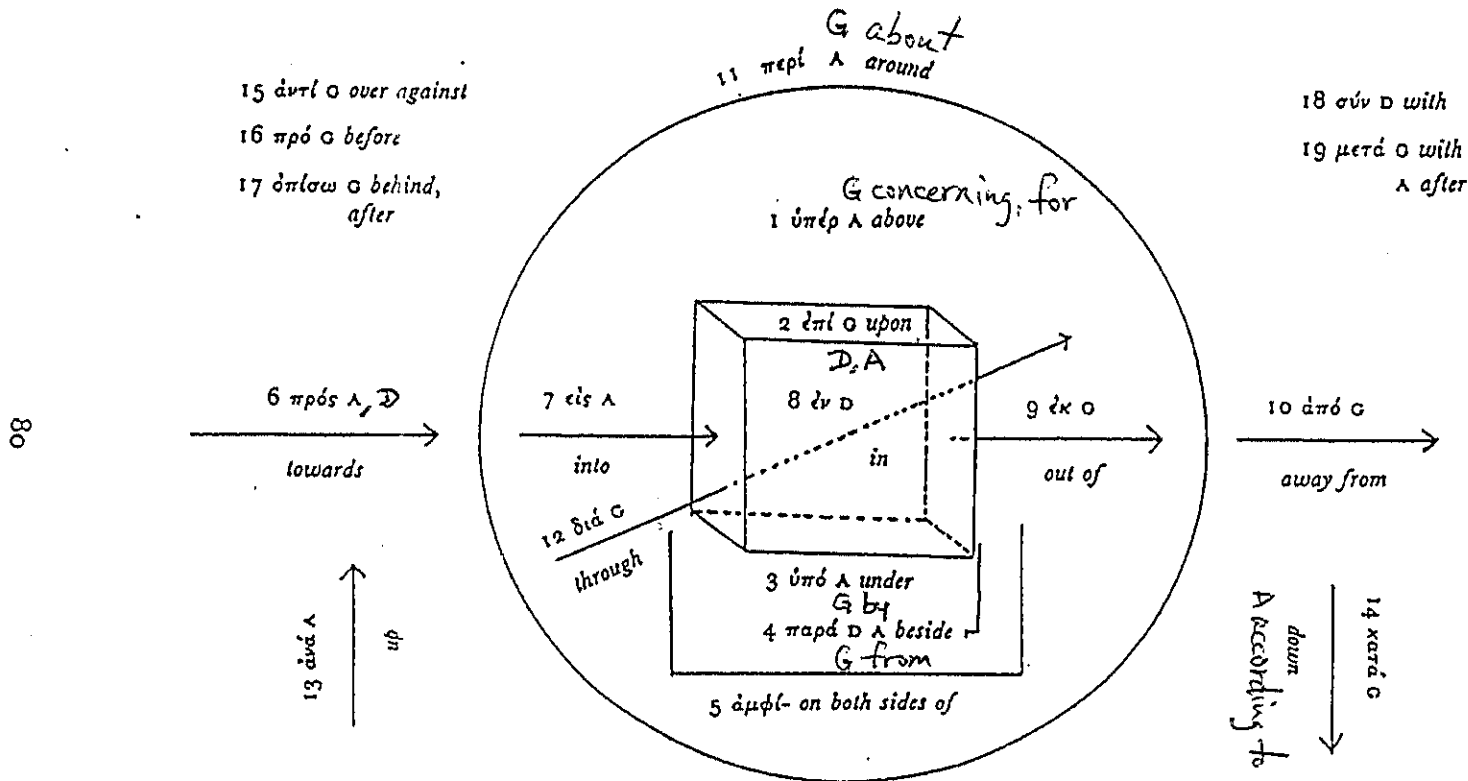 G about
11 περί A around
15 ἀντί G over against
16 πρό G before
17 ὀπίσω G behind,
after
18 σύν D with
19 μετά G with
A after
G concerning, for
1 ὑπέρ A above
2 ἐπί G upon
D, A
6 πρός A, D
towards
7 εἰς A
into
8 ἐν D
in
9 ἐκ G
out of
10 ἀπό G
away from
12 διά G
through
3 ὑπό A under
G by
4 παρά D A beside
G from
5 ἀμφί- on both sides of
13 ἀνά A
up
14 κατά G
down
A according to
80